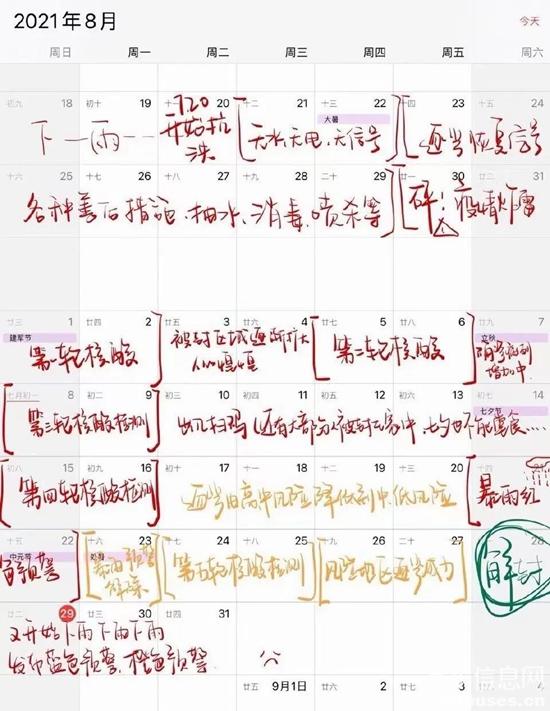 2021年8月
今天
周日 周一 周二 周三 周四 周五 周六
初九 18 初十 19 十一 20 十二 21 十三 22 十四 23 十五 24
大暑
下一雨一 720开始抗洪 无水、无电、无信号 逐步恢复信号
十六 25 十七 26 十八 27 十九 28 二十 29 廿一 30 廿二 31
各种善后措施、抽水、消毒、喷杀等 砰！疫情炸雷
廿三 1 廿四 2 廿五 3 廿六 4 廿七 5 廿八 6 廿九 7
建军节 立秋
第一轮核酸 被封区域逐渐扩大 人心惶惶 第二轮核酸 确诊病例增加中
七月初一 8 初二 9 初三 10 初四 11 初五 12 初六 13 初七 14
七夕节
第三轮核酸检测 出门扫码 还有大部分人被封在家中 不能堂食……
初八 15 初九 16 初十 17 十一 18 十二 19 十三 20 十四 21
第四轮核酸检测 逐步由高中风险降低到中低风险 暴雨红
十五 22 十六 23 十七 24 十八 25 十九 26 二十 27 廿一 28
中元节 处暑
色预警 暴雨预警解除 第五轮核酸检测 风险地区逐步成为 解封
廿二 29 廿三 30 廿四 31
又开始下雨下雨下雨
发布蓝色预警、橙色预警
廿五 9月1日 廿六 2 廿七 3 4
信息网